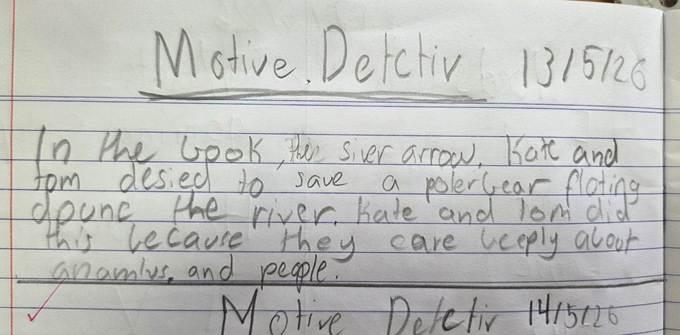 Motive. Detctiv 13/5/26
In the book, the siver arrow, Kate and
tom desied to save a polerbear floting
dounc the river. Kate and Tom did
this because they care beeply about
anamlus, and people.
Motive Detctiv 14/5/26